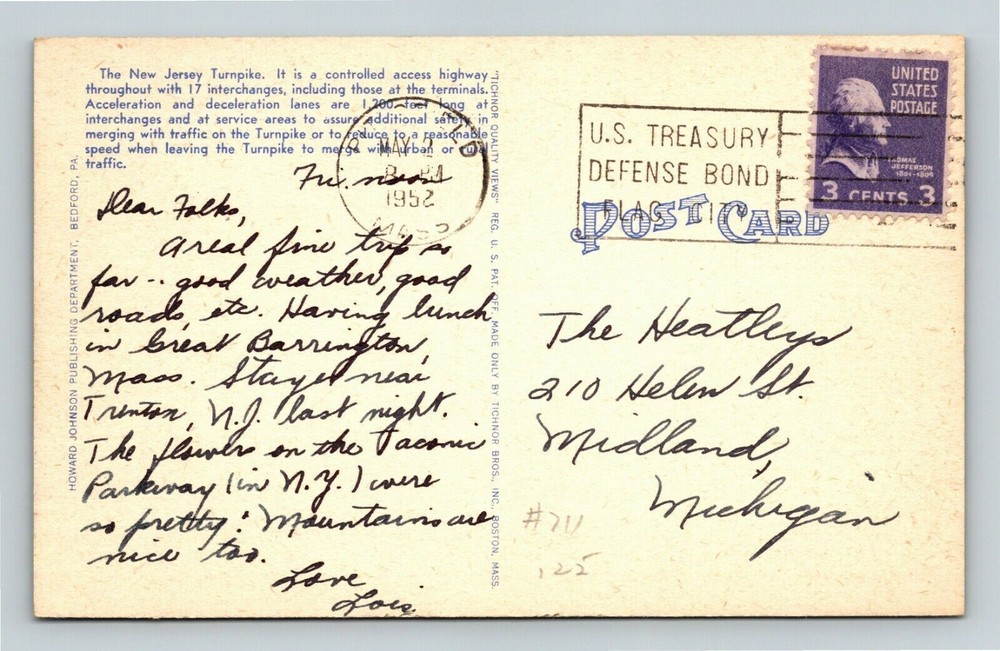 The New Jersey Turnpike. It is a controlled access highway
throughout with 17 interchanges, including those at the terminals.
Acceleration and deceleration lanes are 1,200 feet long at
interchanges and at service areas to assure additional safety in
merging with traffic on the Turnpike or to reduce to a reasonable
speed when leaving the Turnpike to merge with urban or rural
traffic.
HOWARD JOHNSON PUBLISHING DEPARTMENT, BEDFORD, PA.
Fri. noon
Dear Folks,
A real fine trip so
far -- good weather, good
roads, etc. Having lunch
in Great Barrington,
Mass. Stayed near
Trenton, N.J. last night.
The flowers on the Taconic
Parkway (in N.Y.) were
so pretty! Mountains are
nice too.
Love
Lois
"TICHNOR QUALITY VIEWS" REG. U. S. PAT. OFF. MADE ONLY BY TICHNOR BROS., INC., BOSTON, MASS.
MAY 2
PM
1952
MASS
U.S. TREASURY
DEFENSE BOND
FLAG CITY
POST CARD
UNITED
STATES
POSTAGE
THOMAS
JEFFERSON
1801-1809
3 CENTS 3
The Heatleys
210 Helen St.
Midland,
Michigan
#711
.25